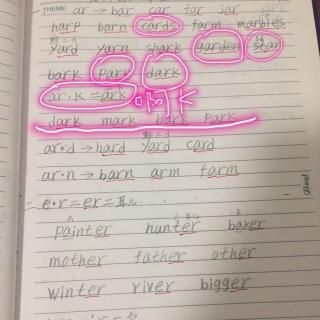 THEME ar → bar car far jar
harp barn cards farm marbles
yard yarn shark garden star
bark park dark
ar·k = ark
dark mark bark park
ar·d → hard yard card
ar·n → barn arm farm
= e·r = er = 耳儿
painter hunter baker
mother father other
winter river bigger